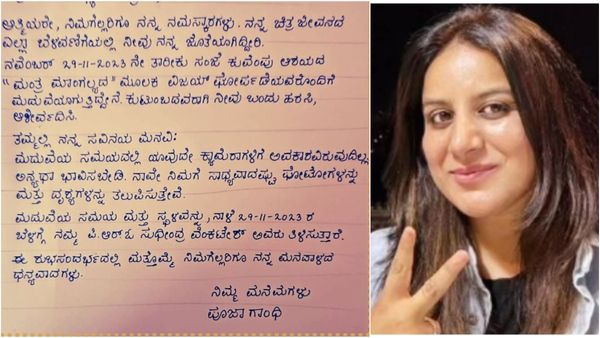 ಆತ್ಮೀಯರೇ, ನಿಮಗೆಲ್ಲರಿಗೂ ನನ್ನ ನಮಸ್ಕಾರಗಳು. ನನ್ನ ಚಿತ್ರ ಜೀವನದ
ಎಲ್ಲಾ ಬೆಳವಣಿಗೆಯಲ್ಲಿ ನೀವು ನನ್ನ ಜೊತೆಯಾಗಿದ್ದೀರಿ.
ನವೆಂಬರ್ 29-11-2023 ನೇ ತಾರೀಕು ಸಂಜೆ ಕುವೆಂಪು ಆಶಯದ
"ಮಂತ್ರ ಮಾಂಗಲ್ಯದ" ಮೂಲಕ ವಿಜಯ್ ಘೋರ್ಪಡೆಯವರೊಂದಿಗೆ
ಮದುವೆಯಾಗುತ್ತಿದ್ದೇನೆ. ಕುಟುಂಬದವರಾಗಿ ನೀವು ಬಂದು ಹರಸಿ,
ಆಶೀರ್ವದಿಸಿ.
ತಮ್ಮೆಲ್ಲಿ ನನ್ನ ಸವಿನಯ ಮನವಿ:
ಮದುವೆಯ ಸಮಯದಲ್ಲಿ ಯಾವುದೇ ಕ್ಯಾಮೆರಾಗಳಿಗೆ ಅವಕಾಶವಿರುವುದಿಲ್ಲ
ಅನ್ಯಥಾ ಭಾವಿಸಬೇಡಿ. ನಾವೇ ನಿಮಗೆ ಸಾಧ್ಯವಾದಷ್ಟು ಫೋಟೋಗಳನ್ನು
ಮತ್ತು ದೃಶ್ಯಗಳನ್ನು ತಲುಪಿಸುತ್ತೇವೆ.
ಮದುವೆಯ ಸಮಯ ಮತ್ತು ಸ್ಥಳವನ್ನು, ನಾಳೆ 29-11-2023 ರ
ಬೆಳಗ್ಗೆ ನಮ್ಮ ಪಿ.ಆರ್.ಓ ಸುಧೀಂದ್ರ ವೆಂಕಟೇಶ್ ಅವರು ತಿಳಿಸುತ್ತಾರೆ.
ಈ ಶುಭಸಂದರ್ಭದಲ್ಲಿ ಮತ್ತೊಮ್ಮೆ ನಿಮಗೆಲ್ಲರಿಗೂ ನನ್ನ ಮನದಾಳದ
ಧನ್ಯವಾದಗಳು.
ನಿಮ್ಮ ಮನೆಮಗಳು
ಪೂಜಾ ಗಾಂಧಿ